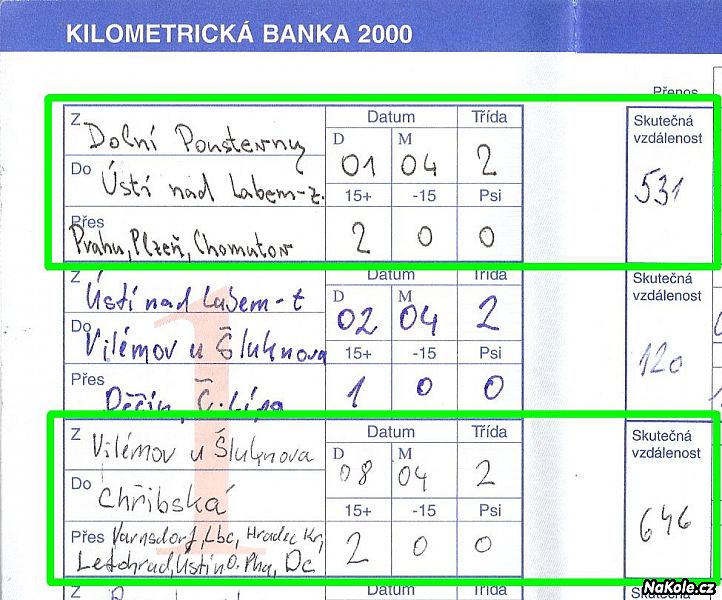 KILOMETRICKÁ BANKA 2000
Přenos
Z Dolní Poustevny Datum Třída Skutečná vzdálenost
D 01 M 04 2
Do Ústí nad Labem-z. 531
15+ -15 Psi
Přes Prahu, Plzeň, Chomutov 2 0 0
Z Ústí nad Labem-z Datum Třída Skutečná vzdálenost
D 02 M 04 2
Do Vilémov u Šluknova 120
15+ -15 Psi
Přes Děčín, Č. Lípa 1 0 0
Z Vilémov u Šluknova Datum Třída Skutečná vzdálenost
D 08 M 04 2
Do Chřibská 646
15+ -15 Psi
Přes Varnsdorf, Lbc, Hradec Kr,
Letohrad, Ústí n O. Pha, Dc 2 0 0
Z Datum Třída Skutečná
NaKole.cz